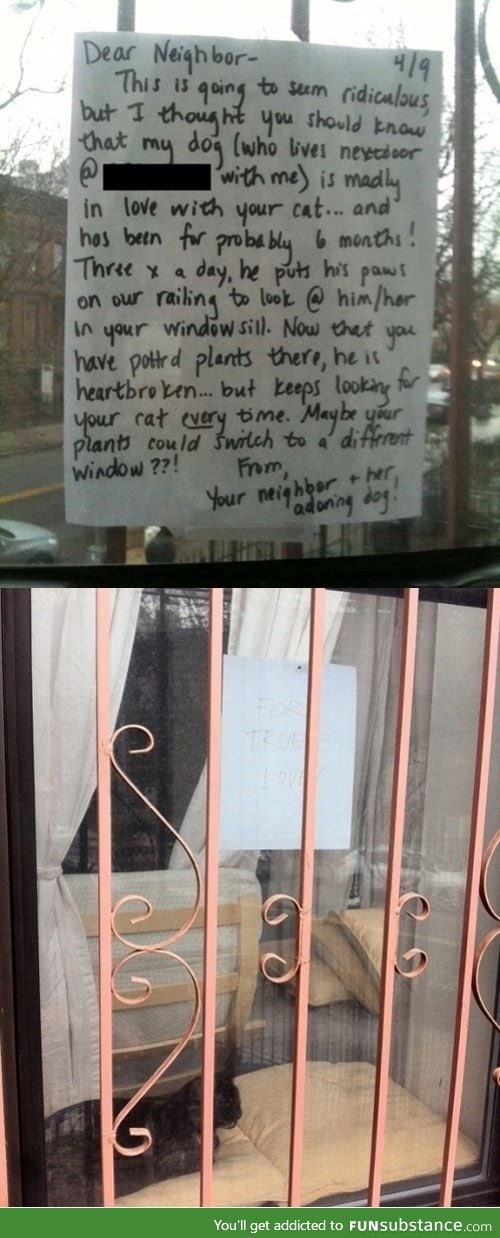 Dear Neighbor- 4/9
This is going to seem ridiculous,
but I thought you should know
that my dog (who lives nextdoor
@ with me) is madly
in love with your cat... and
has been for probably 6 months!
Three x a day, he puts his paws
on our railing to look @ him/her
in your windowsill. Now that you
have pottrd plants there, he is
heartbroken... but keeps looking for
your cat every time. Maybe your
plants could switch to a different
window??!
From,
Your neighbor + her
adoring dog!
FOR
TRUE
LOVE!
You'll get addicted to FUNsubstance.com